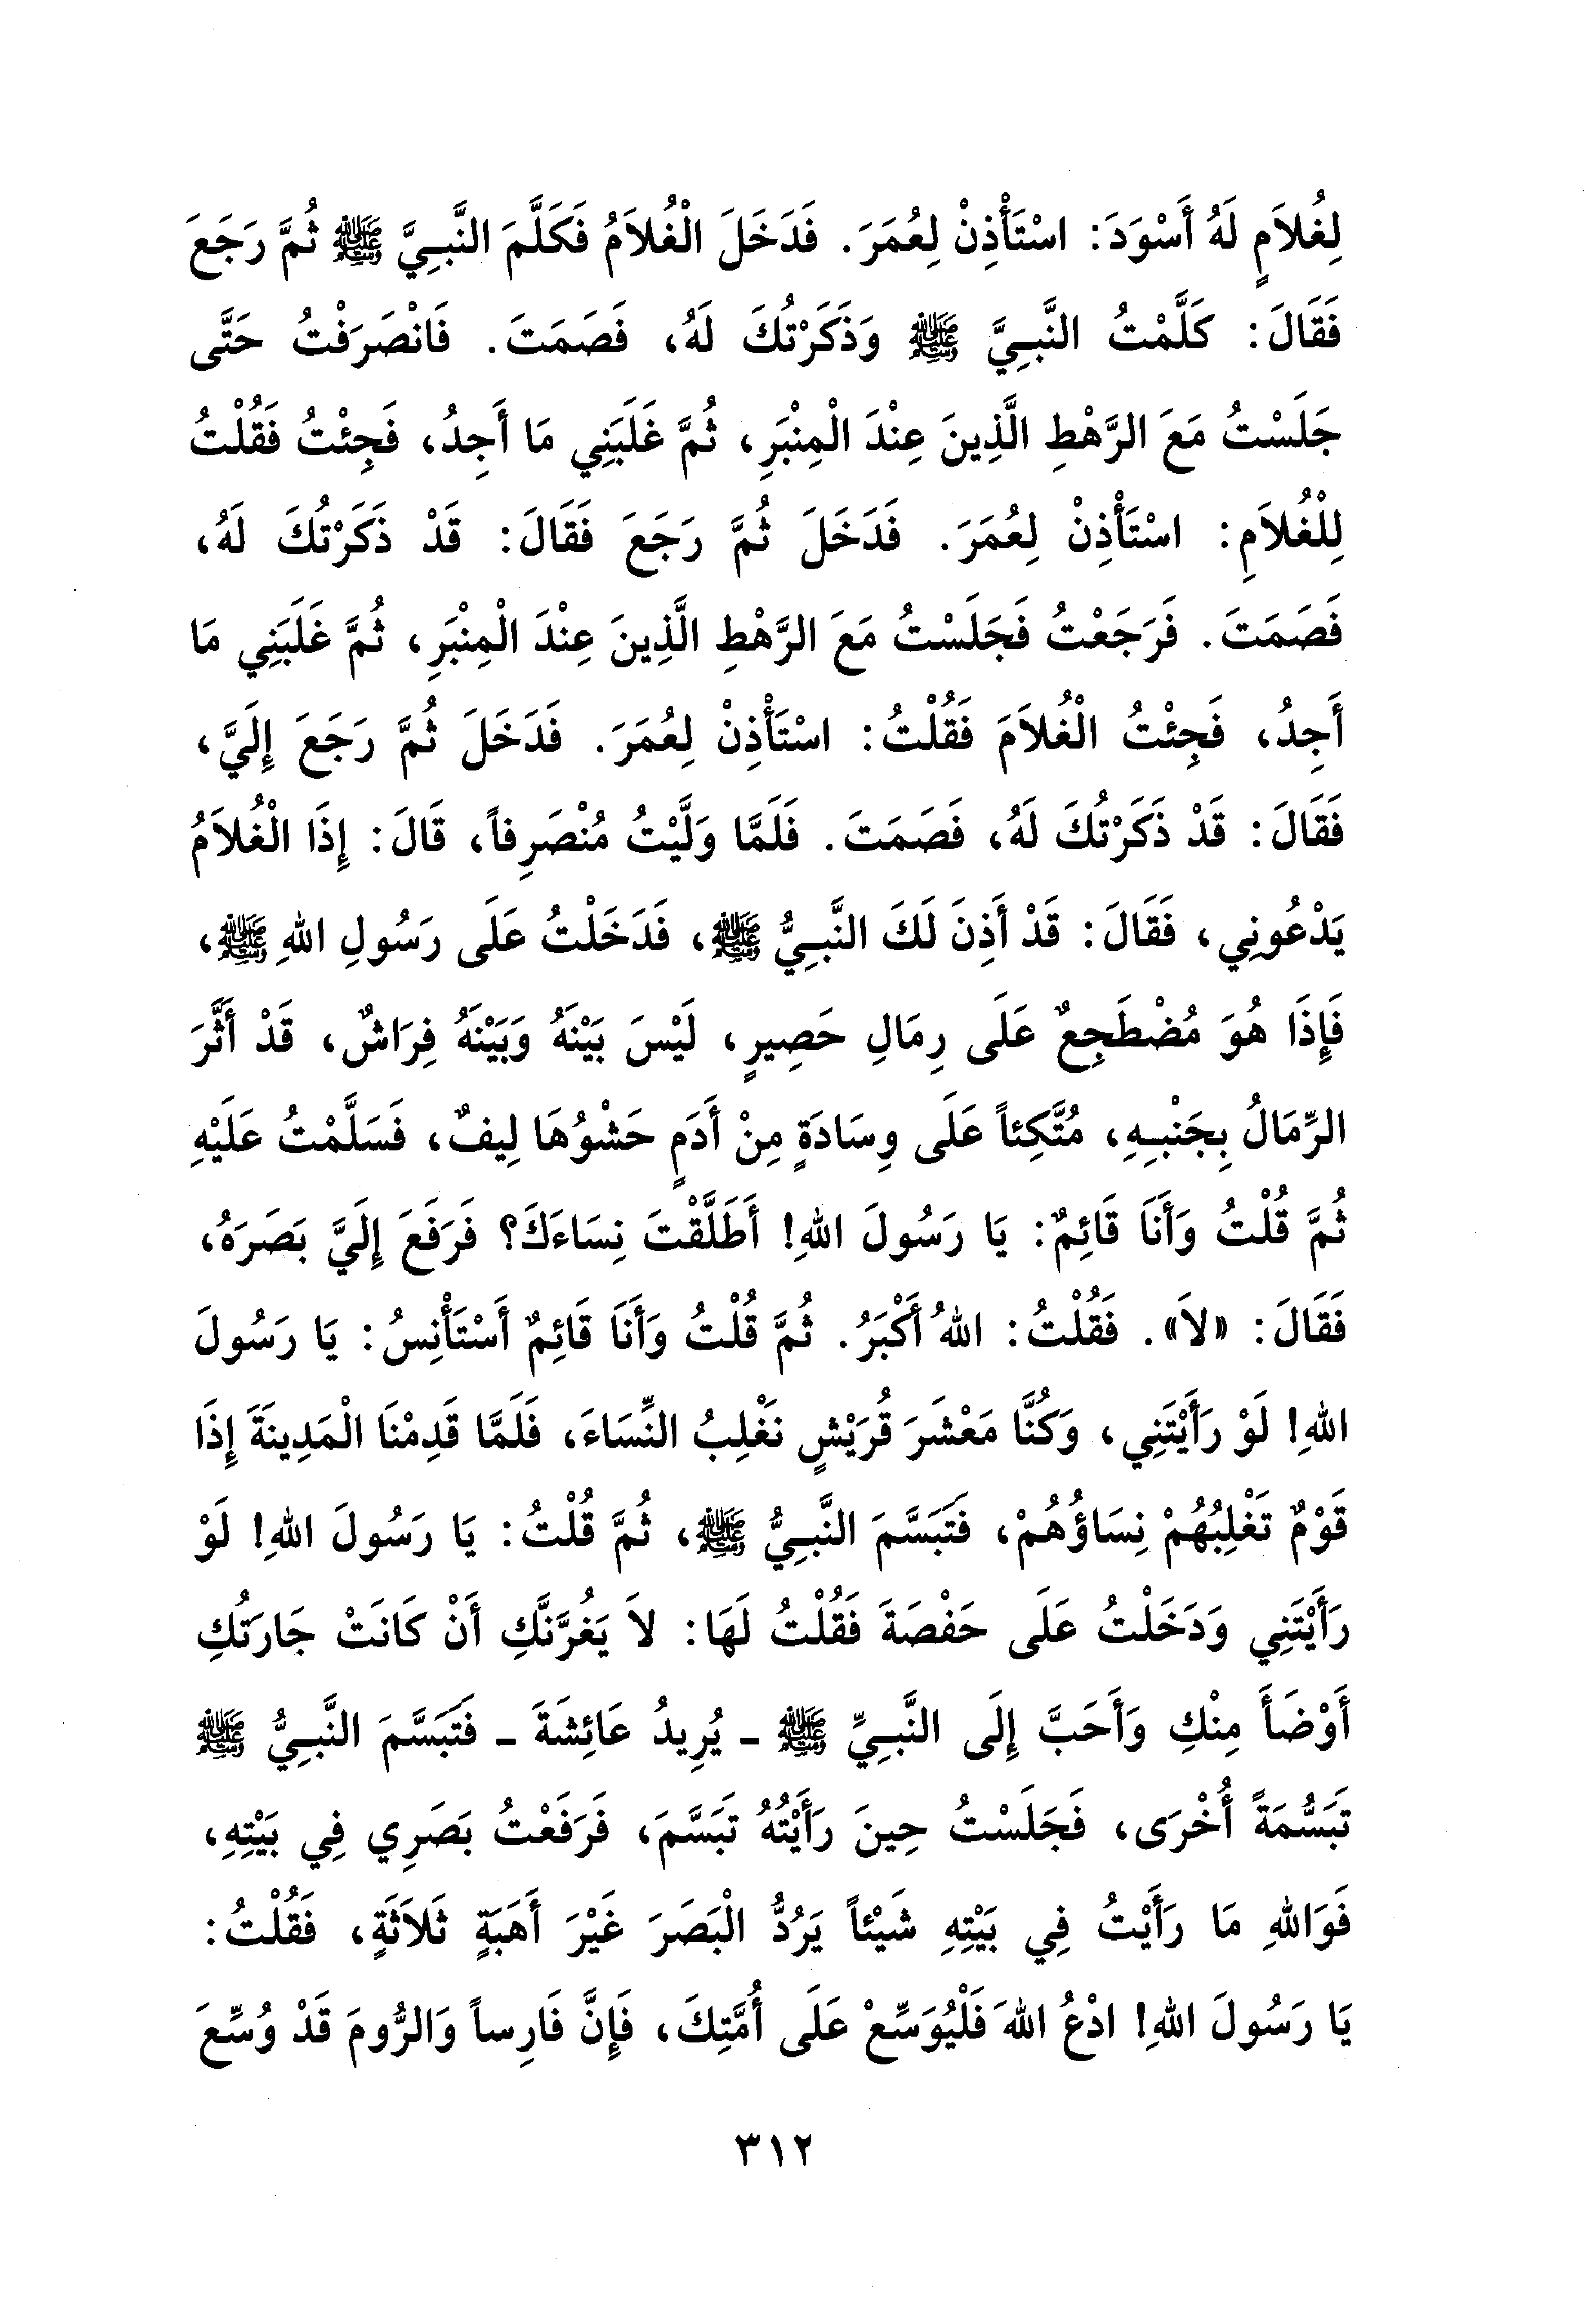 لِغُلاَمٍ لَهُ أَسْوَدَ: اسْتَأْذِنْ لِعُمَرَ. فَدَخَلَ الْغُلاَمُ فَكَلَّمَ النَّبِيَّ ﷺ ثُمَّ رَجَعَ
فَقَالَ: كَلَّمْتُ النَّبِيَّ ﷺ وَذَكَرْتُكَ لَهُ، فَصَمَتَ. فَانْصَرَفْتُ حَتَّى
جَلَسْتُ مَعَ الرَّهْطِ الَّذِينَ عِنْدَ الْمِنْبَرِ، ثُمَّ غَلَبَنِي مَا أَجِدُ، فَجِئْتُ فَقُلْتُ
لِلْغُلاَمِ: اسْتَأْذِنْ لِعُمَرَ. فَدَخَلَ ثُمَّ رَجَعَ فَقَالَ: قَدْ ذَكَرْتُكَ لَهُ،
فَصَمَتَ. فَرَجَعْتُ فَجَلَسْتُ مَعَ الرَّهْطِ الَّذِينَ عِنْدَ الْمِنْبَرِ، ثُمَّ غَلَبَنِي مَا
أَجِدُ، فَجِئْتُ الْغُلاَمَ فَقُلْتُ: اسْتَأْذِنْ لِعُمَرَ. فَدَخَلَ ثُمَّ رَجَعَ إِلَيَّ،
فَقَالَ: قَدْ ذَكَرْتُكَ لَهُ، فَصَمَتَ. فَلَمَّا وَلَّيْتُ مُنْصَرِفاً، قَالَ: إِذَا الْغُلاَمُ
يَدْعُونِي، فَقَالَ: قَدْ أَذِنَ لَكَ النَّبِيُّ ﷺ، فَدَخَلْتُ عَلَى رَسُولِ اللهِ ﷺ،
فَإِذَا هُوَ مُضْطَجِعٌ عَلَى رِمَالِ حَصِيرٍ، لَيْسَ بَيْنَهُ وَبَيْنَهُ فِرَاشٌ، قَدْ أَثَّرَ
الرِّمَالُ بِجَنْبِهِ، مُتَّكِئاً عَلَى وِسَادَةٍ مِنْ أَدَمٍ حَشْوُهَا لِيفٌ، فَسَلَّمْتُ عَلَيْهِ
ثُمَّ قُلْتُ وَأَنَا قَائِمٌ: يَا رَسُولَ اللهِ! أَطَلَّقْتَ نِسَاءَكَ؟ فَرَفَعَ إِلَيَّ بَصَرَهُ،
فَقَالَ: «لاَ». فَقُلْتُ: اللهُ أَكْبَرُ. ثُمَّ قُلْتُ وَأَنَا قَائِمٌ أَسْتَأْنِسُ: يَا رَسُولَ
اللهِ! لَوْ رَأَيْتَنِي، وَكُنَّا مَعْشَرَ قُرَيْشٍ نَغْلِبُ النِّسَاءَ، فَلَمَّا قَدِمْنَا الْمَدِينَةَ إِذَا
قَوْمٌ تَغْلِبُهُمْ نِسَاؤُهُمْ، فَتَبَسَّمَ النَّبِيُّ ﷺ، ثُمَّ قُلْتُ: يَا رَسُولَ اللهِ! لَوْ
رَأَيْتَنِي وَدَخَلْتُ عَلَى حَفْصَةَ فَقُلْتُ لَهَا: لاَ يَغُرَّنَّكِ أَنْ كَانَتْ جَارَتُكِ
أَوْضَأَ مِنْكِ وَأَحَبَّ إِلَى النَّبِيِّ ﷺ - يُرِيدُ عَائِشَةَ - فَتَبَسَّمَ النَّبِيُّ ﷺ
تَبَسُّمَةً أُخْرَى، فَجَلَسْتُ حِينَ رَأَيْتُهُ تَبَسَّمَ، فَرَفَعْتُ بَصَرِي فِي بَيْتِهِ،
فَوَاللهِ مَا رَأَيْتُ فِي بَيْتِهِ شَيْئاً يَرُدُّ الْبَصَرَ غَيْرَ أَهَبَةٍ ثَلاَثَةٍ، فَقُلْتُ:
يَا رَسُولَ اللهِ! ادْعُ اللهَ فَلْيُوَسِّعْ عَلَى أُمَّتِكَ، فَإِنَّ فَارِساً وَالرُّومَ قَدْ وُسِّعَ
٣١٢